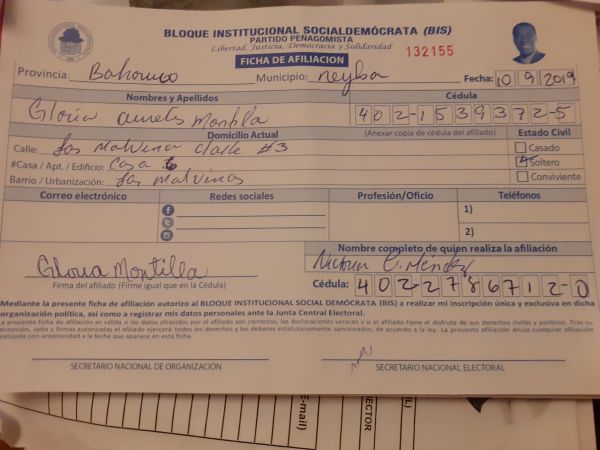 BLOQUE INSTITUCIONAL SOCIALDEMÓCRATA (BIS)
PARTIDO PEÑAGOMISTA
Libertad, Justicia, Democracia y Solidaridad
FICHA DE AFILIACION
132155
Provincia: Bahoruco Municipio: neyba Fecha: 10 9 2019
Nombres y Apellidos Cédula
Gloria Montilla 402-1539372-5
Domicilio Actual (Anexar copia de cédula del afiliado) Estado Civil
Calle: Las Malvinas Clalle #3 Casado
#Casa / Apt. / Edificio: Casa 6 Soltero
Barrio / Urbanización: Las Malvinas Conviviente
Correo electrónico Redes sociales Profesión/Oficio Teléfonos
1)
2)
Nombre completo de quien realiza la afiliación
Gloria Montilla C. Méndez
Firma del afiliado (Firme igual que en la Cédula) Cédula: 402-2786712-0
Mediante la presente ficha de afiliación autorizo al BLOQUE INSTITUCIONAL SOCIAL DEMÓCRATA (BIS) a realizar mi inscripción única y exclusiva en dicha
organización política, así como a registrar mis datos personales ante la Junta Central Electoral.
La presente ficha de afiliación es válida si los datos ofrecidos por el afiliado son correctos, las declaraciones veraces y si el afiliado tiene el disfrute de sus derechos civiles y políticos. Tras su
recepción, sello y firmas autorizadas el afiliado ejercerá todos los derechos y los deberes estatutariamente sancionados, de acuerdo a la ley. La presente afiliación anula cualquier afiliación
realizada con anterioridad a la fecha que aparece en esta ficha.
SECRETARIO NACIONAL DE ORGANIZACIÓN SECRETARIO NACIONAL ELECTORAL